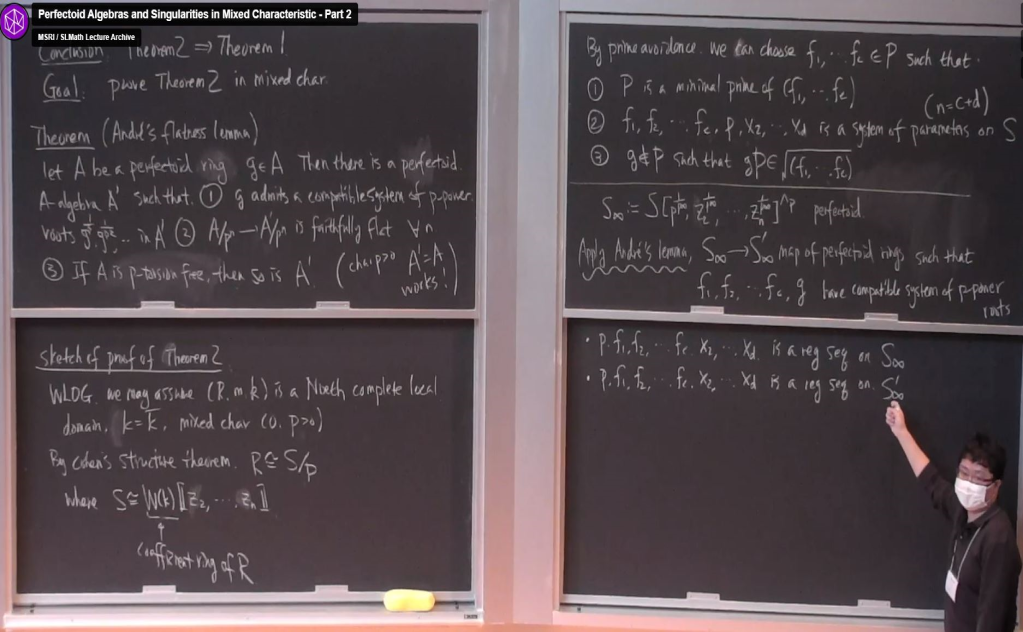 Perfectoid Algebras and Singularities in Mixed Characteristic - Part 2
MSRI / SLMath Lecture Archive
Conclusion: Theorem 2 ⇒ Theorem 1
Goal: prove Theorem 2 in mixed char.
Theorem (André's flatness lemma)
let A be a perfectoid ring g ∈ A Then there is a perfectoid
A-algebra A' such that. ① g admits a compatible system of p-power
roots g^{1/p}, g^{1/p^2}, .. in A' ② A/p^n → A'/p^n is faithfully flat ∀n
③ If A is p-torsion free, then so is A' (char p>0 A'=A
works!)
Sketch of proof of Theorem 2
WLOG. we may assume (R, m, k) is a Noeth complete local
domain, k = k̄, mixed char (0, p>0)
By Cohen's structure theorem. R ≅ S/P
where S ≅ W(k)[[z_2, ⋯ z_n]]
coefficient ring of R
By prime avoidance. we can choose f_1, ⋯ f_c ∈ P such that.
① P is a minimal prime of (f_1, ⋯ f_c)
(n=c+d)
② f_1, f_2, ⋯ f_c, p, x_2, ⋯ x_d is a system of parameters on S
③ g ∉ P such that gP ∈ √(f_1, ⋯ f_c)
S_∞ := S[p^{1/p^∞}, z_2^{1/p^∞}, ⋯, z_n^{1/p^∞}]^{∧p} perfectoid.
Apply André's lemma, S_∞ → S'_∞ map of perfectoid rings such that
f_1, f_2, ⋯ f_c, g have compatible system of p-power
roots
• p, f_1, f_2, ⋯ f_c, x_2, ⋯ x_d is a reg seq on S_∞
• p, f_1, f_2, ⋯ f_c, x_2, ⋯ x_d is a reg seq on S'_∞